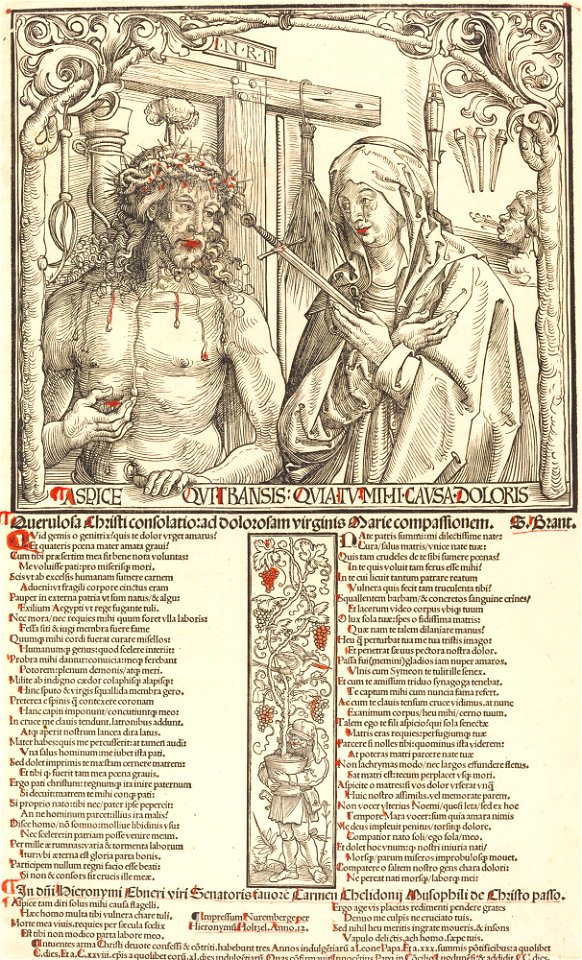 I N R I
ASPICE QVI TRANSIS: QVIA TV MIHI CAVSA DOLORIS
Querulosa Christi consolatio: ad dolorosam virginis Marie compassionem. S. Brant.
QVid gemis o genitrix: quis te dolor vrget amarus?
Et quateris pœna mater amata graui?
Cum tibi præsertim mea sit bene nota voluntas:
Me voluisse pati: pro miserisq; mori.
Scis vt ab excelsis humanam sumere carnem
Adueni: vt fragili corpore cinctus eram
Pauper in externa patria vt sum natus/& algu:
Exilium Aegypti vt rege fugante tuli.
Nec mora/nec requies mihi quum foret vlla laboris:
Fessa siti & iugi membra fuere fame
Quumq; mihi cordi fuerat curare misellos:
Humanumq; genus: quod scelere interiit:
Probra mihi dantur: conuicia: meq; ferebant
Potorem: plenum demonis/atq; meri.
Milite ab indigno cædor colaphisq; alapisq:
Hinc sputo & virgis squallida membra gero.
Preterea e spinis q̃ contexere coronam
Hanc capiti imponunt: concutiuntq; meo:
In cruce me clauis tendunt. latronibus addunt.
Atq; aperit nostrum lancea dira latus.
Mater habes: quis me percusserit: at tamen audi
Vna salus hominum me iubet ista pati.
Sed dolet imprimis te mæstam cernere matrem:
Et tibi q̃ fuerit tam mea pœna grauis.
Ergo pati christum: regnumq; ita inire paternum
Si decuit: matrem te mihi conq; pati:
Si proprio nato: tibi nec/pater ipse pepercit:
An ne hominum parcet: illius ira malis?
Disce homo/nõ somno: molliue libidinis vsu:
Nec sceleretin patriam posse venire meam.
Per mille ærumnas: varia & tormenta laborum
Itur: vbi æterna est gloria parta bonis.
Participem nullum regni facio esse beati:
Si non & consors sit crucis ille meæ.
NAte patris summi: mi dilectissime nate:
Cura/salus matris/vnice nate tuæ:
Quis tam crudeles de te sibi sumere pœnas?
In te quis voluit tam ferus esse mihi?
In te cui licuit tantum patrare reatum
Vulnera quis fecit tam truculenta tibi?
Squallentem barbam/& concretos sanguine crines/
Et lacerum video corpus vbiq; tuum
O lux sola tuæ: spes o fidissima matris:
Quæ nam te talem dilaniare manus?
Heu q̃ perturbat tua me tua tristis imago:
Et penetrat sæuus pectora nostra dolor.
Passa fui (memini) gladios iam nuper amaros.
Vlnis cum Symeon te tulit ille senex.
Et cum te amissum triduo synagoga tenebat.
Te captum mihi cum nuncia fama refert.
Ac cum te clauis tensum cruce vidimus. at nunc
Exanimum corpus/heu mihi/cerno tuum.
Talem ego te fili aspicio! qui sola senectæ
Matris eras requies: perfugiumq; tuæ
Parcere si nolles tibi: quominus ista viderem:
At poteras matri parcere nate tuæ
Non lachrymas modo/nec largos effundere fletus.
Sat matri est: tecum perplacet vsq; mori.
Aspicite o matres: si vos dolor vrserat vnq̃
Huic nostro assimilis. vel memorate parem.
Non vocer vlterius Noemi/quasi leta/sed ex hoc
Tempore Mara vocer: sum quia amara nimis
Me deus impleuit penitus/torsitq; dolore.
Compatior nato soli/ego sola/meo.
Et dolet hoc vnum: q̃ nostri iniuria nati/
Morsq; parum miseros improbulosq; mouet.
Compatere o saltem nostro gens chara dolori:
Ne pereat nati morsq;/laborq; mei:
In dñi Hieronymi Ebneri viri Senatoris fauorẽ Carmen Chelidonij Musophili de Christo passo.
Aspice tam diri solus mihi causa flagelli.
Hæc homo multa tibi vulnera chare tuli.
Morte mea viuis, requies per sæcula fœlix
Est tibi non modico parta labore meo.
Impressum Nurembergæ per
Hieronymũ Holtzel, Anno, 12.
Ergo age vis placatus redimenti pendere grates
Denuo me culpis ne cruciato tuis.
Sed nihil heu meritis ingrate moueris. & insons
Vapulo delictis, ach homo, sæpe tuis.